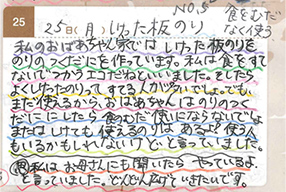 NO.5
食をむだなく使う
25
25日(月) しけった板のり
私のおばあちゃん家では しけった板のりを
のりのつくだにを作っています。私は食をすて
ないでつかうエコだねといいました。そしたら
よくしけったのりって すてる人が多いでしょ。でも、
まだ使えるから、おばあちゃんは のりのつく
だににしたら 食のむだ使いにならないでしょ
またはしけても使えるのりは あるよ？使う人
もいるかもしれないけどと言っていました。
私はお母さんにも聞いたら やっているよ
と言っていました。どんどん広げていきたいです。